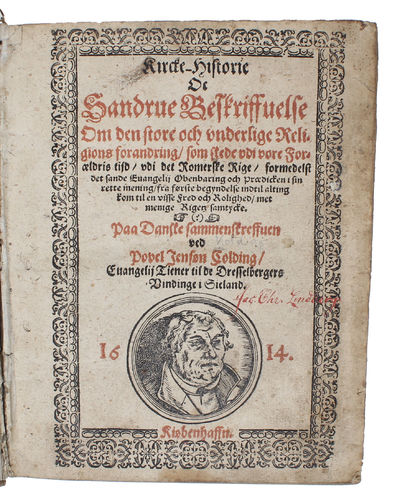 Kircke-Historie
Oc
Sandrue Beskriffuelse
Om den store och vnderlige Reli-
gions forandring / som skede vdi vore For-
ældris tijd / vdi det Romerske Rige / formedelst
det sande Euangelij Obenbaring och Prædicken i sin
rette mening / fra første begyndelse indtil alting
kom til en visse Fred och Rolighed / met
menige Rigens samtycke.
(?)
Paa Danske sammenskreffuen
ved
Povel Jensøn Colding /
Euangelij Tiener til de Dresselbergers
Vindinge i Sieland.
Jac. Chr.
16 14.
Kiøbenhaffn.